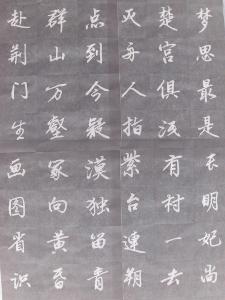 梦思最是
楚宫俱泯
灭舟人指
点到今疑
群山万壑
赴荆门生
长明妃尚
有村一去
紫台連朔
漠独留青
冢向黄昏
画图省识